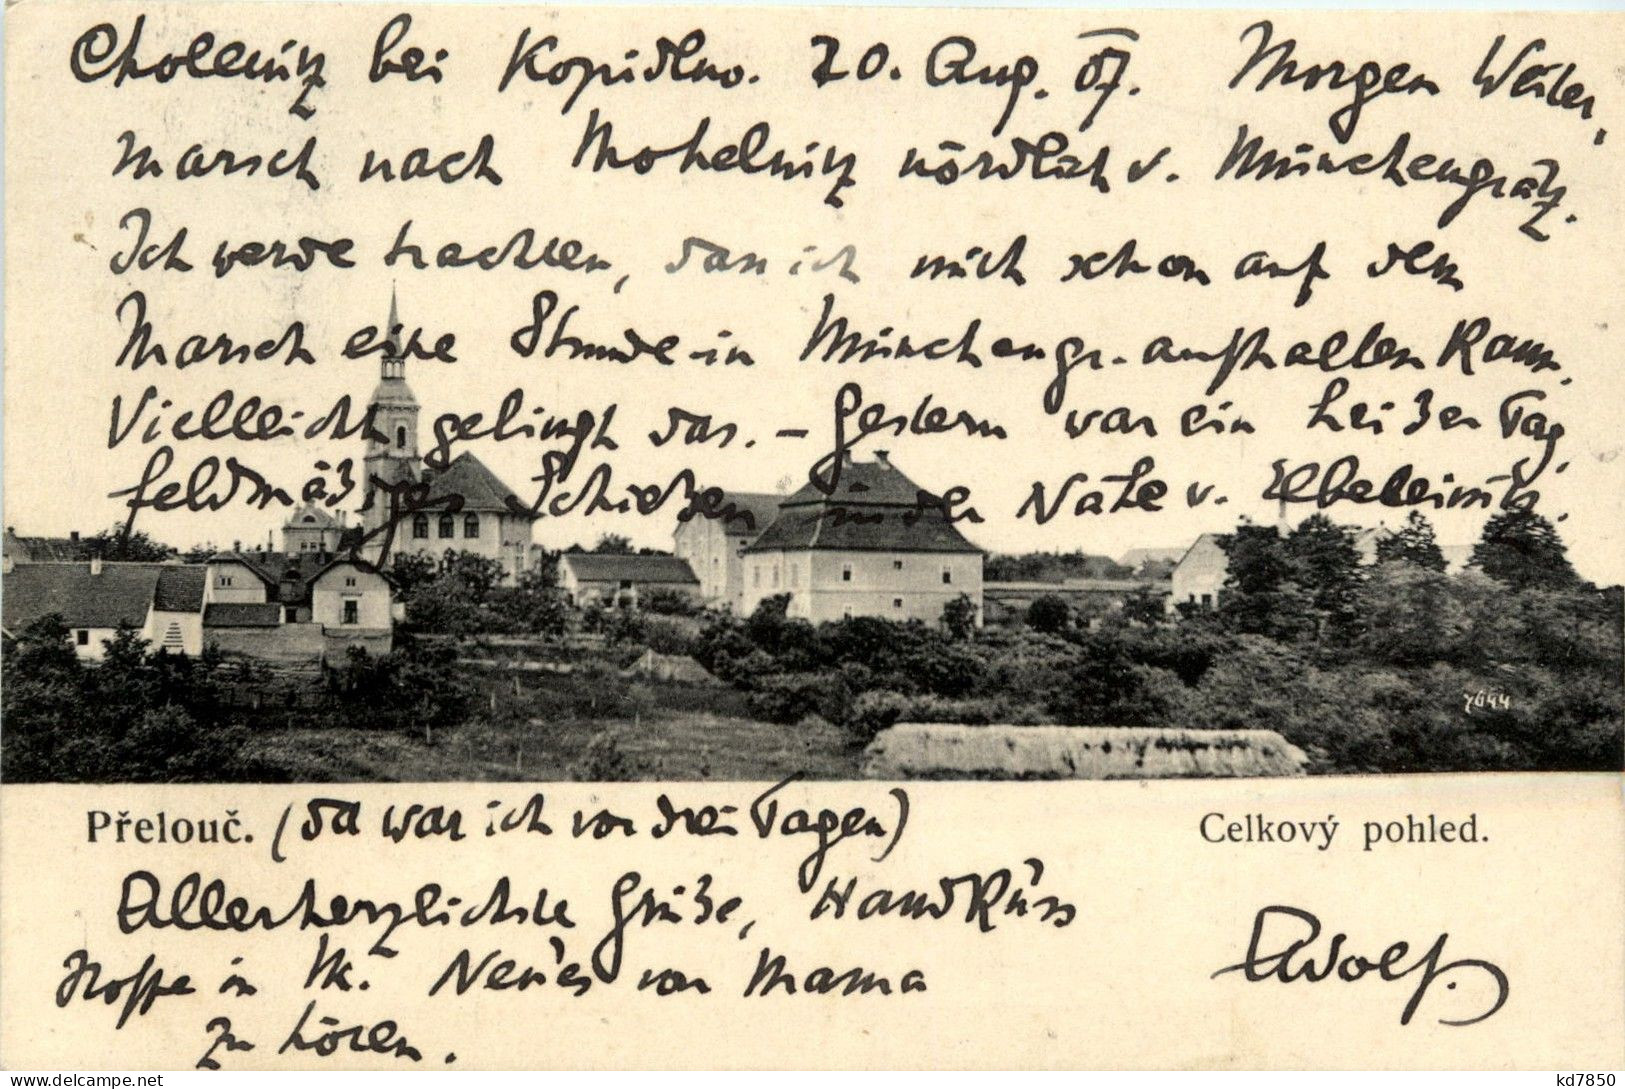 Choleviz bei Kopidlno. 20. Aug. 07. Morgen Weiter,
marsch nach Mohelniz nördlich v. Münchengrätz.
Ich werde trachten, dass ich mich schon auf dem
Marsch eine Stunde in Münchengr. aufhalten kann.
Vielleicht gelingt das. – Gestern war ein heißer Tag,
feldmäßiges Schießen in der Nähe v. Elbeteinitz.
7644
Přelouč. (Da war ich vor drei Tagen)
Celkový pohled.
Allerherzlichste Grüße, Handküss
Hoffe in M. Neues von Mama
zu hören.
Adolf.
kd7850